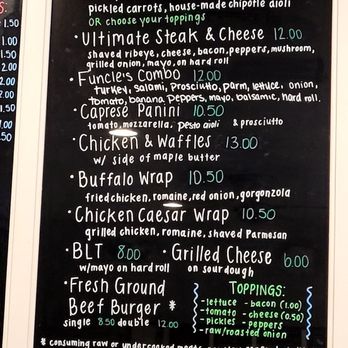 S:
1.50
1.00
1.00
1.50
0.50
1.50
pickled carrots, house-made chipotle aioli
OR choose your toppings
• Ultimate Steak & Cheese 12.00
shaved ribeye, cheese, bacon, peppers, mushroom,
grilled onion, mayo, on hard roll
• Funcle's Combo 12.00
turkey, salami, Prosciutto, parm, lettuce, onion,
tomato, banana peppers, mayo, balsamic, hard roll.
• Caprese Panini 10.50
tomato, mozzarella, pesto aioli & prosciutto
• Chicken & Waffles 13.00
w/ side of maple butter
• Buffalo Wrap 10.50
fried chicken, romaine, red onion, gorgonzola
• Chicken Caesar Wrap 10.50
grilled chicken, romaine, shaved Parmesan
• BLT 8.00 • Grilled Cheese 6.00
w/mayo on hard roll on sourdough
• Fresh Ground
Beef Burger *
single 8.50 double 12.00
TOPPINGS:
- lettuce - bacon (1.00)
- tomato - cheese (0.50)
- pickles - peppers
- raw/roasted onion
* consuming raw or undercooked meats